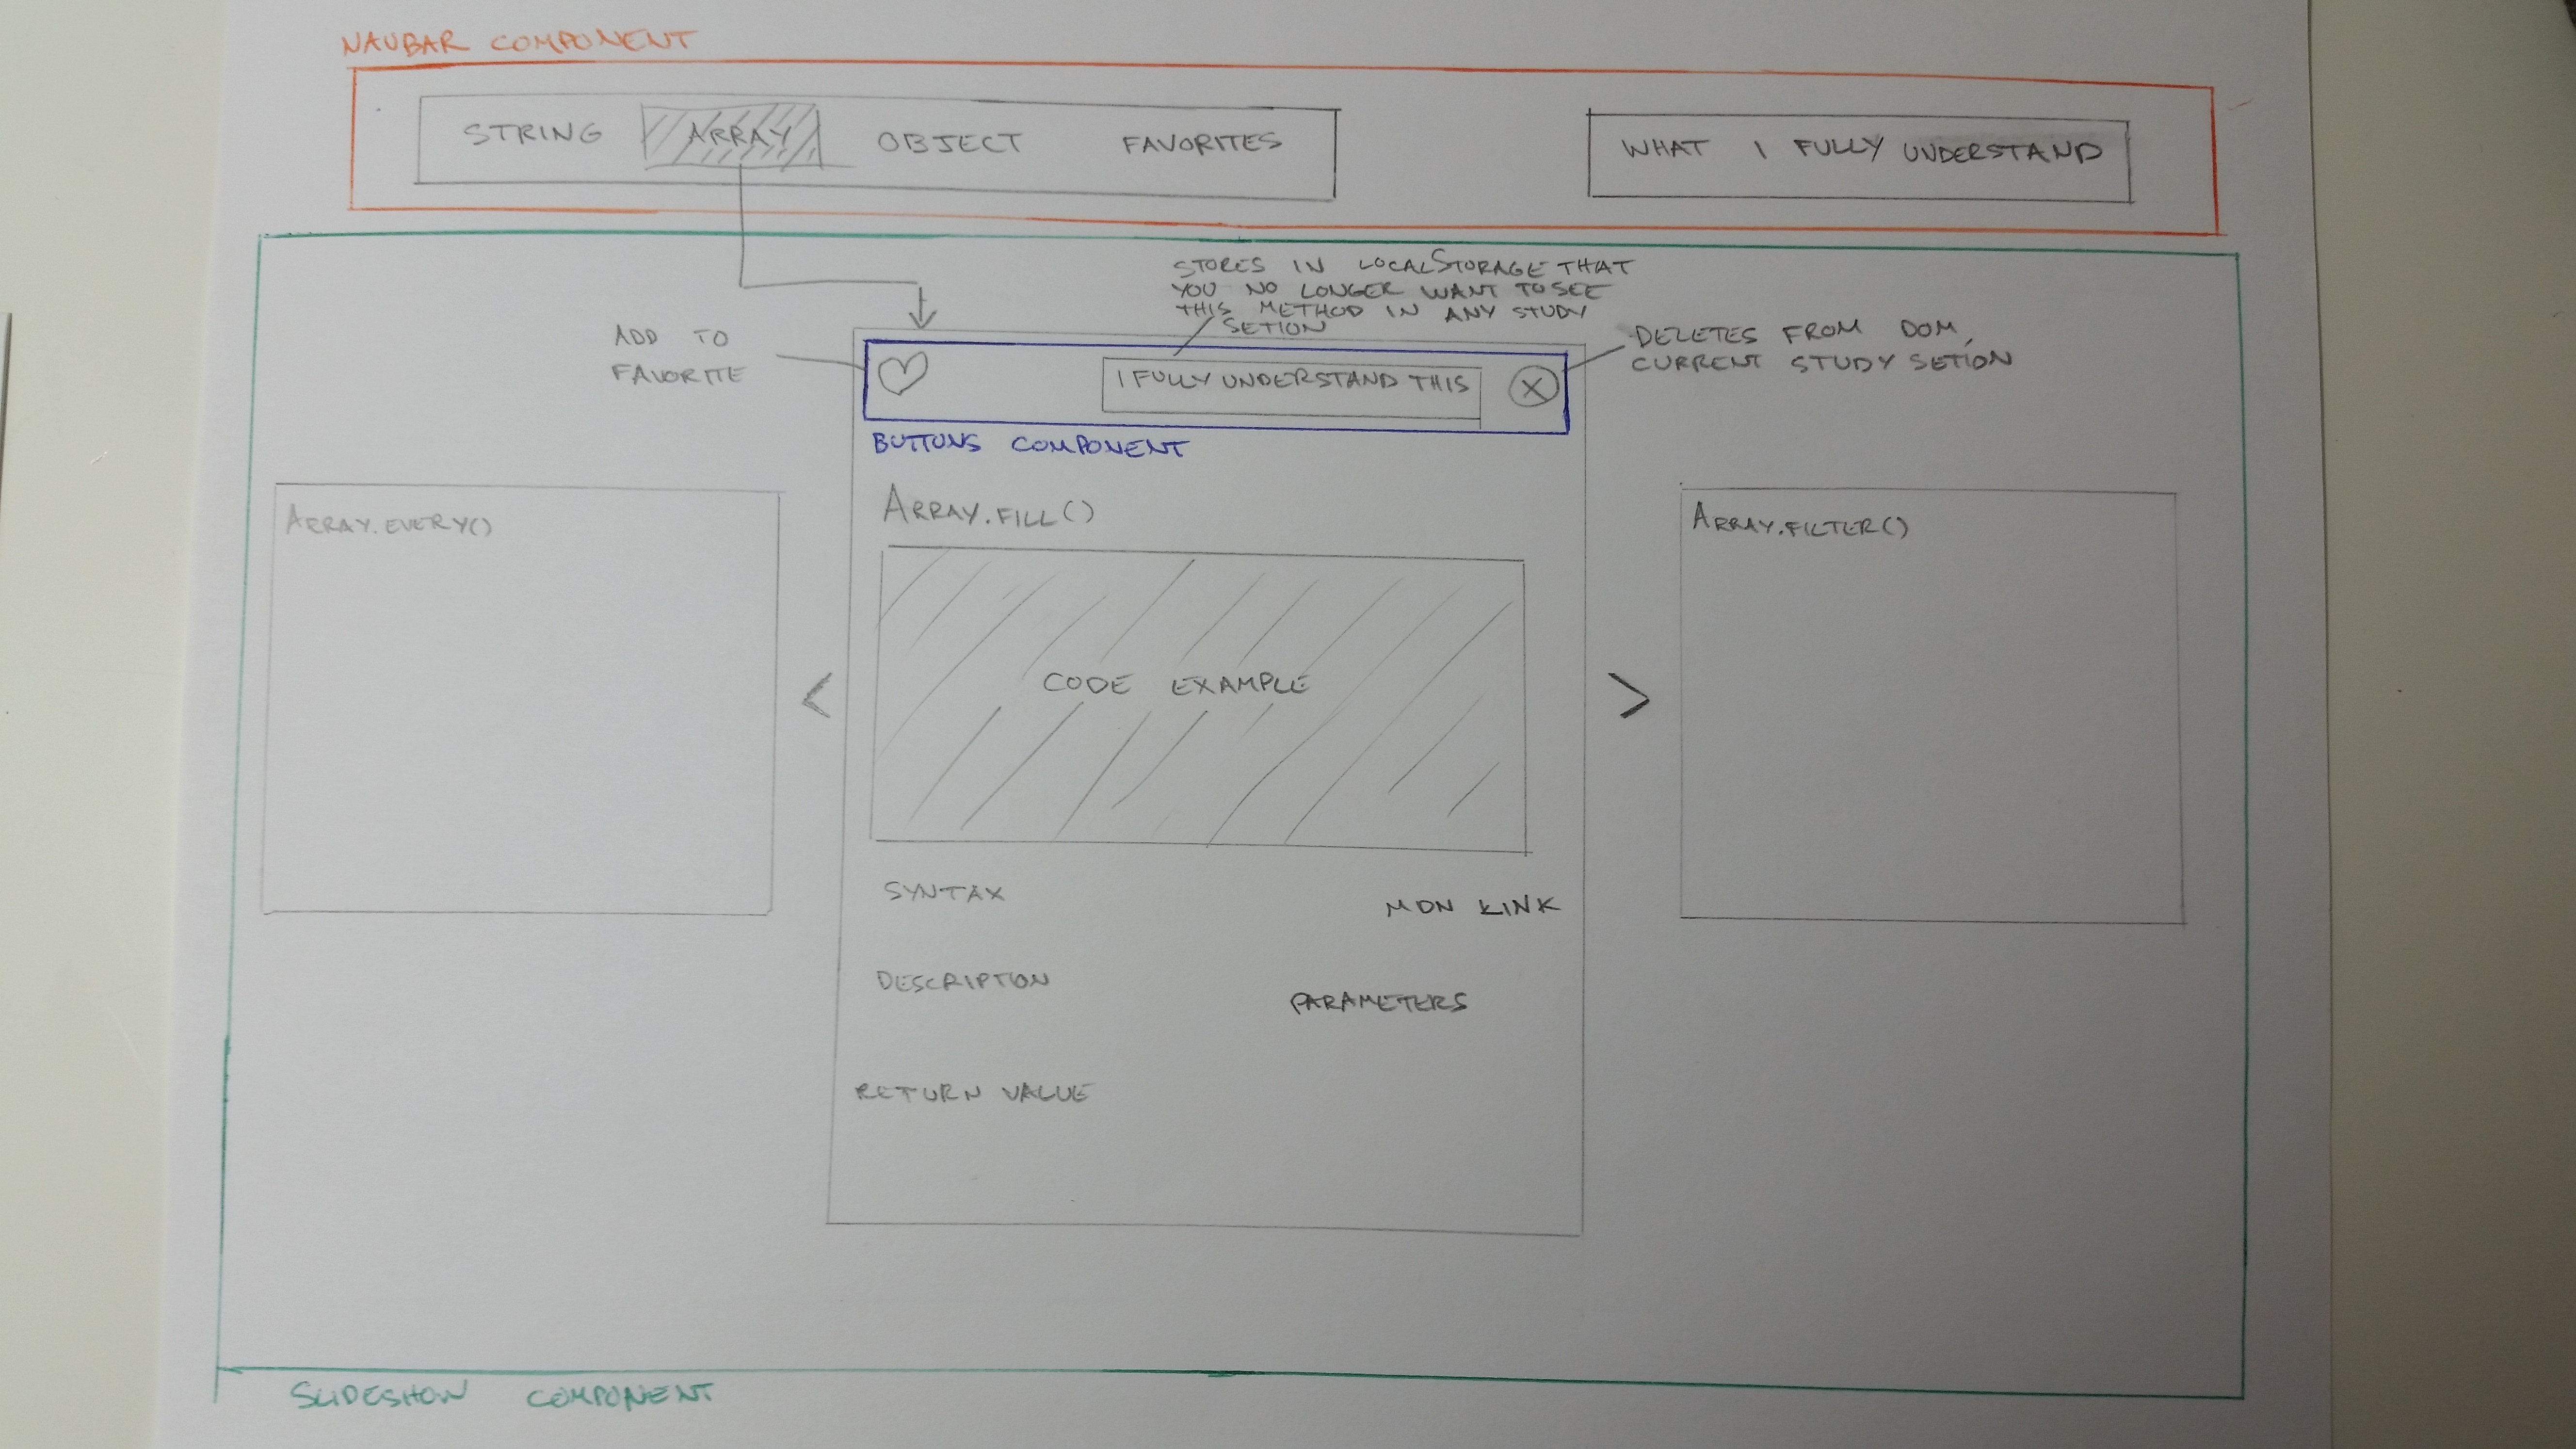 NAVBAR COMPONENT
STRING ARRAY OBJECT FAVORITES
WHAT I FULLY UNDERSTAND
STORES IN LOCALSTORAGE THAT
YOU NO LONGER WANT TO SEE
THIS METHOD IN ANY STUDY
SETION
ADD TO
FAVORITE
I FULLY UNDERSTAND THIS
X
DELETES FROM DOM,
CURRENT STUDY SETION
BUTTONS COMPONENT
ARRAY.EVERY()
ARRAY.FILL()
ARRAY.FILTER()
<
CODE EXAMPLE
>
SYNTAX
MDN LINK
DESCRIPTION
PARAMETERS
RETURN VALUE
SLIDESHOW COMPONENT